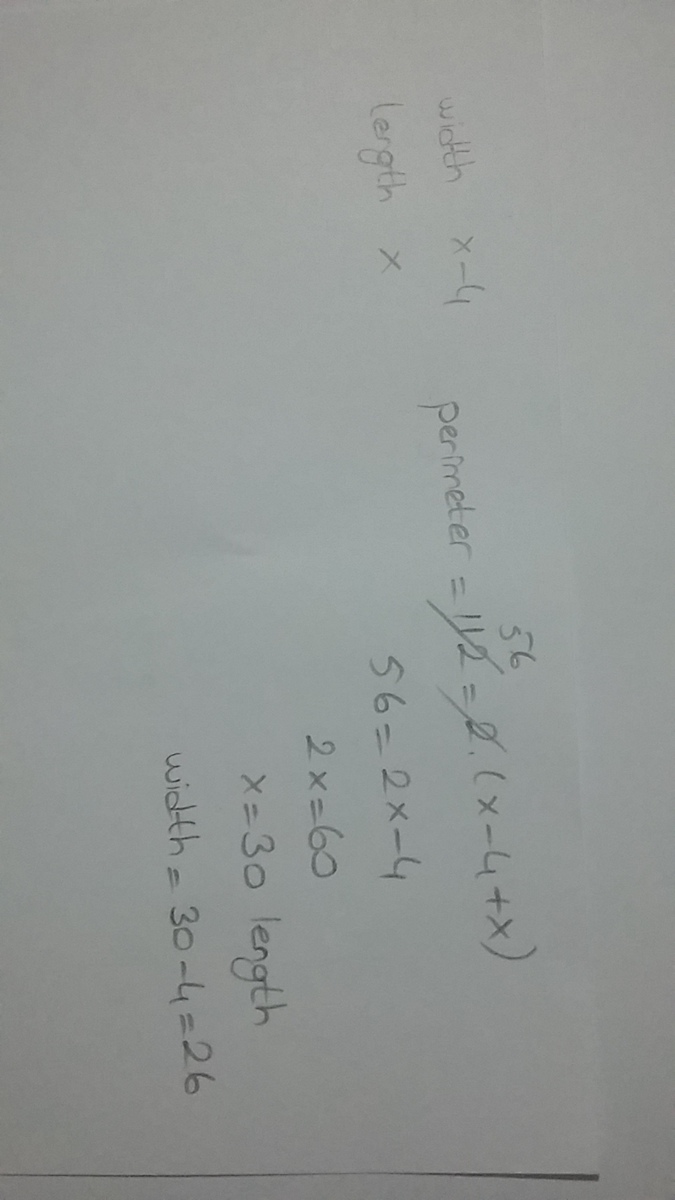 width x-4 perimeter = 112 = 2.(x-4+x)
56
length x 56 = 2x-4
2x=60
x=30 length
width = 30-4=26